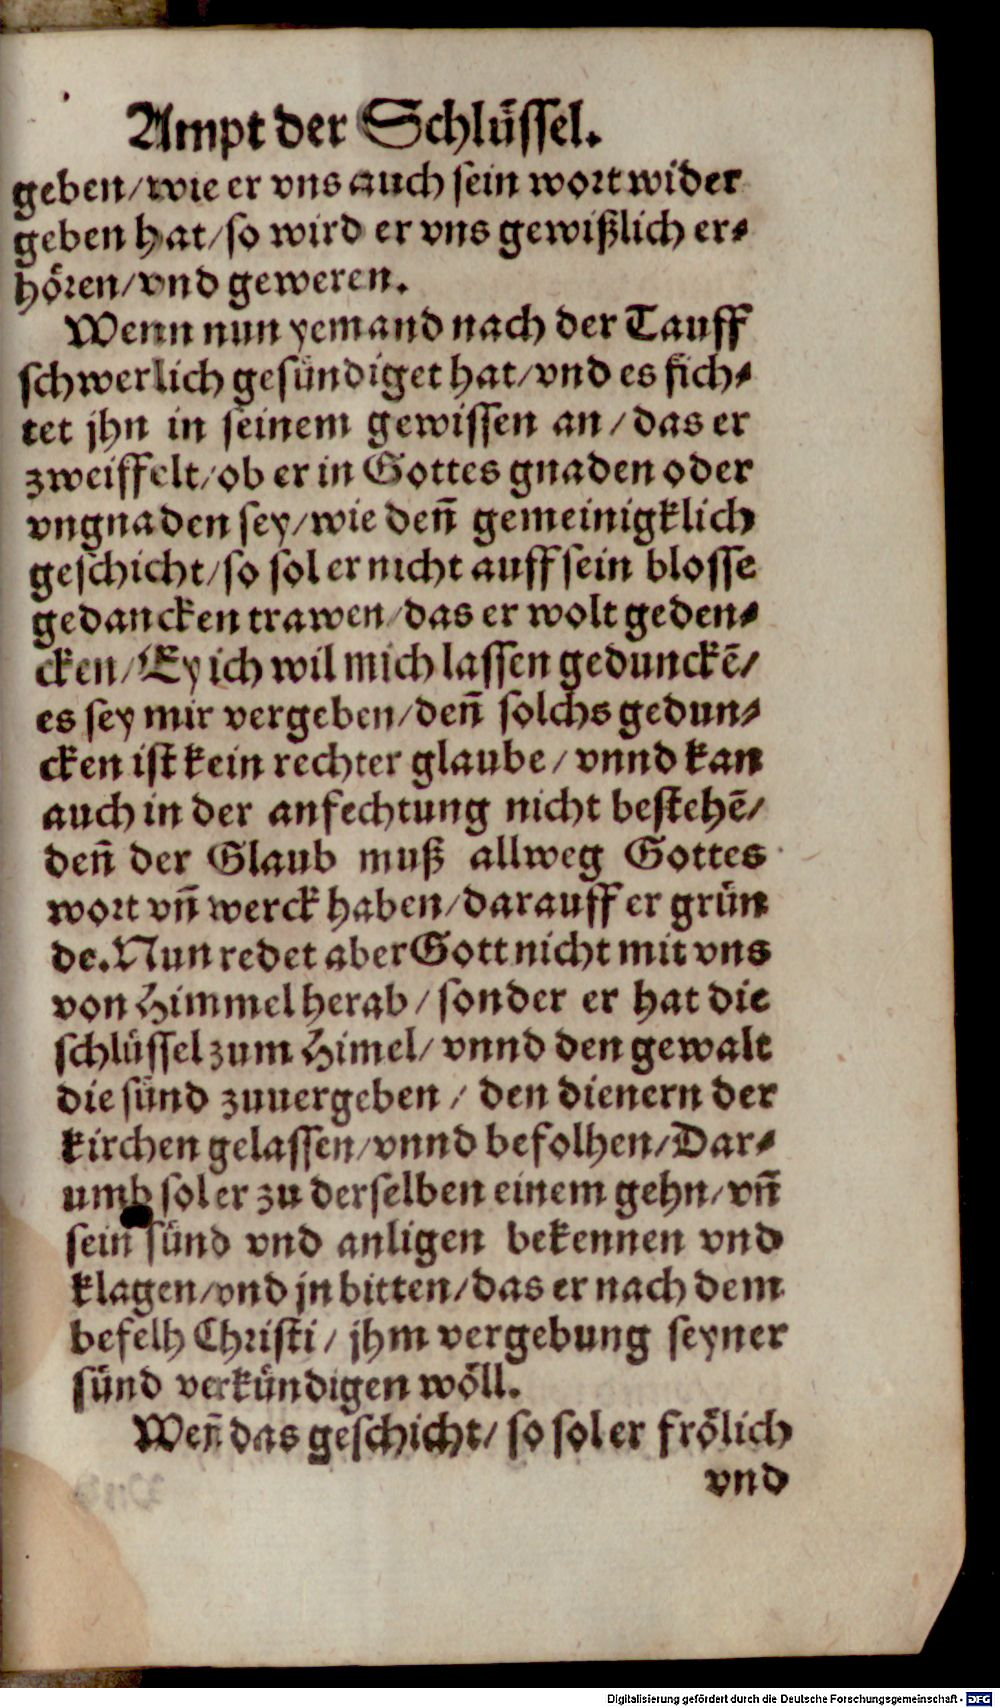 Ampt der Schlüssel.
geben/wie er vns auch sein wort wider
geben hat/so wird er vns gewißlich er⸗
hören/vnd geweren.
Wenn nun yemand nach der Tauff
schwerlich gesündiget hat/vnd es fich⸗
tet jhn in seinem gewissen an/das er
zweiffelt/ob er in Gottes gnaden oder
vngnaden sey/wie deñ gemeinigklich
geschicht/so sol er nicht auff sein blosse
gedancken trawen/das er wolt geden⸗
cken/Ey ich wil mich lassen gedunckē/
es sey mir vergeben/deñ solchs gedun⸗
cken ist kein rechter glaube/vnnd kan
auch in der anfechtung nicht bestehē/
deñ der Glaub muß allweg Gottes
wort vñ werck haben/darauff er grün
de. Nun redet aber Gott nicht mit vns
von Himmel herab/sonder er hat die
schlüssel zum Himel/vnnd den gewalt
die sünd zuuergeben/den dienern der
kirchen gelassen/vnnd befolhen/Dar⸗
umb sol er zu derselben einem gehn/vñ
sein sünd vnd anligen bekennen vnd
klagen/vnd jn bitten/das er nach dem
befelh Christi/jhm vergebung seyner
sünd verkündigen wöll.
Weñ das geschicht/so sol er frölich
vnd
Digitalisierung gefördert durch die Deutsche Forschungsgemeinschaft - DFG